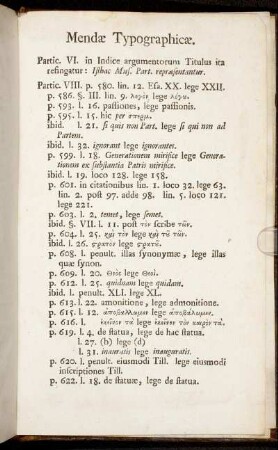 Mendæ Typographicæ.
Partic. VI. in Indice argumentorum Titulus ita
refingatur: Ijsiac Mus. Part. repræsentantur.
Partic. VIII. p. 580. lin. 12. Esa. XX. lege XXII.
p. 586. §. III. lin. 9. λογὸς lege λόγω.
p. 593. l. 16. passiones, lege passionis.
p. 595. l. 15. hic per
ibid. l. 21. si quis non Part. lege si qui non ad
Partem.
ibid. l. 32. ignorant lege ignorantes.
p. 599. l. 18. Generationem mirifice lege Gene-
rationem ex substantia Patris mirifice.
ibid. l. 19. loco 128. lege 158.
p. 601. in citationibus lin. 1. loco 32. lege 63.
lin. 2. post 97. adde 98. lin. 5. loco 121.
lege 221.
p. 603. l. 2. temet, lege semet.
ibid. §. VII. l. 11. post τὸν scribe τῶν.
p. 604. l. 25. χαὶ τὸν lege χαὶ τῶν.
ibid. l. 26. πρατον lege πρατῦ.
p. 608. l. penult. illas synonymæ, lege illas
quæ synon.
p. 609. l. 20. Θεὸς lege Θεοί.
p. 612. l. 25. quidnam lege quidam.
ibid. l. penult. XLI. lege XL.
p. 613. l. 22. amonitione, lege admonitione.
p. 615. l. 12. ἀποβαλλομεν lege ἀποβάλωμεν.
p. 616. l. ἐκεῖνον τὰ lege ἐκεῖνον τὸν καιρὸν τὰ.
p. 619. l. 4. de statua, lege de hac statua.
l. 27. (b) lege (d)
l. 31. inauratis lege inauguratis.
p. 620. l. penult. eiusmodi Till. lege eiusmodi
inscriptiones Till.
p. 622. l. 18. de statuæ, lege de statua.